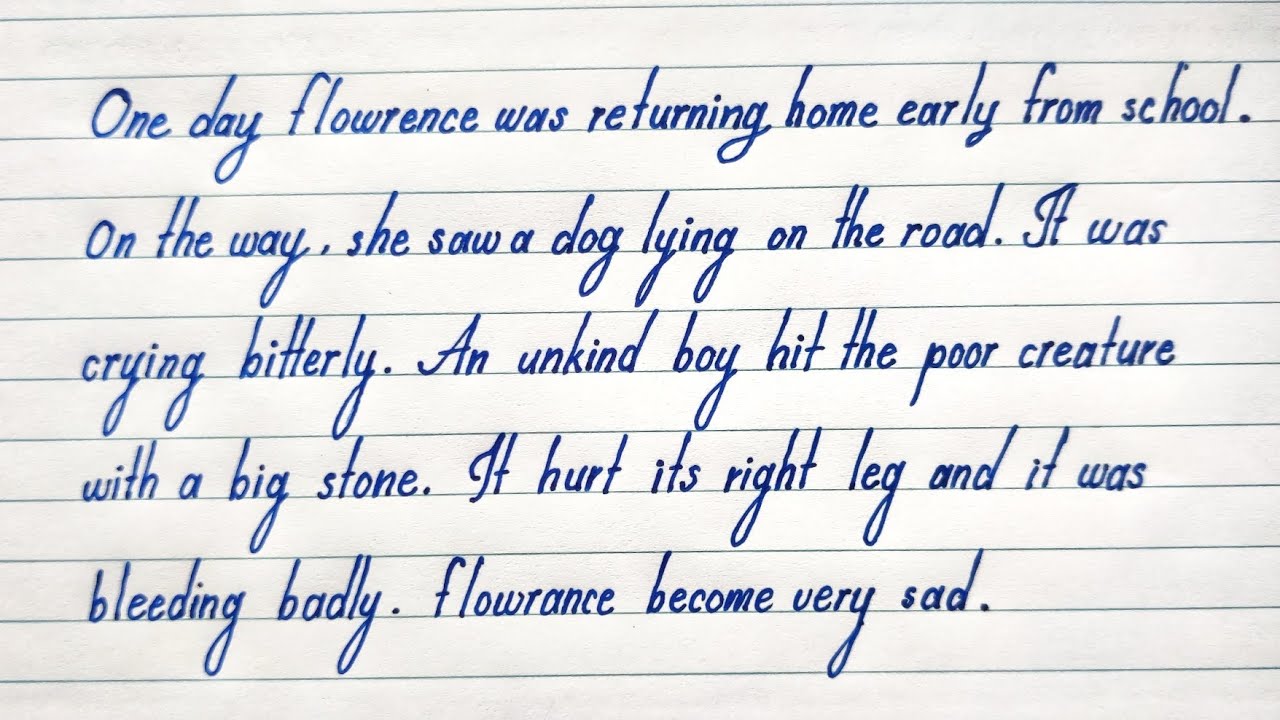 One day flowrence was returning home early from school.
On the way, she saw a dog lying on the road. It was
crying bitterly. An unkind boy hit the poor creature
with a big stone. It hurt its right leg and it was
bleeding badly. flowrance become very sad.